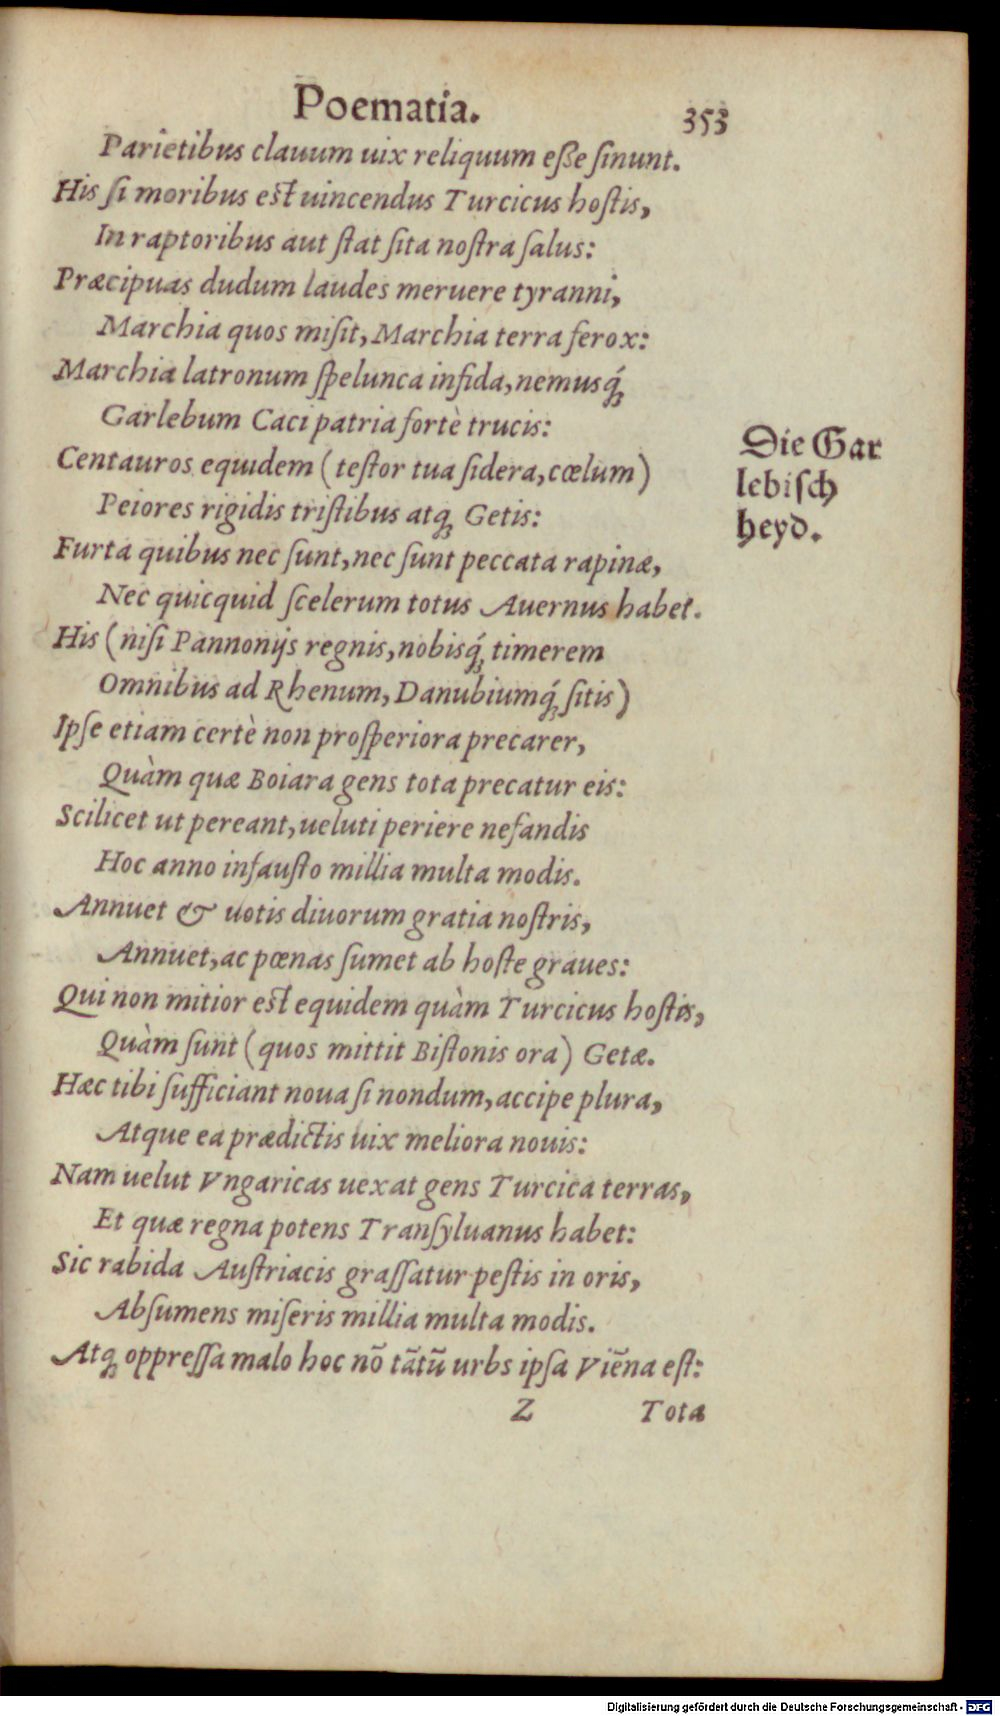 Poematia. 353
Parietibus clauum uix reliquum eſſe ſinunt.
His ſi moribus eſt uincendus Turcicus hoſtis,
In raptoribus aut ſtat ſita noſtra ſalus:
Præcipuas dudum laudes meruere tyranni,
Marchia quos miſit, Marchia terra ferox:
Marchia latronum ſpelunca infida, nemusq́;
Garlebum Caci patria fortè trucis:
Die Gar
Centauros equidem (teſtor tua ſidera, cœlum)
lebiſch
Peiores rigidis triſtibus atq; Getis:
heyd.
Furta quibus nec ſunt, nec ſunt peccata rapinæ,
Nec quicquid ſcelerum totus Auernus habet.
His (niſi Pannonijs regnis, nobisq́; timerem
Omnibus ad Rhenum, Danubiumq́; ſitis)
Ipſe etiam certè non proſperiora precarer,
Quàm quæ Boiara gens tota precatur eis:
Scilicet ut pereant, ueluti periere nefandis
Hoc anno infauſto millia multa modis.
Annuet & uotis diuorum gratia noſtris,
Annuet, ac pœnas ſumet ab hoſte graues:
Qui non mitior eſt equidem quàm Turcicus hoſtis,
Quàm ſunt (quos mittit Biſtonis ora) Getæ.
Hæc tibi ſufficiant noua ſi nondum, accipe plura,
Atque ea prædictis uix meliora nouis:
Nam uelut Vngaricas uexat gens Turcica terras,
Et quæ regna potens Tranſyluanus habet:
Sic rabida Auſtriacis graſſatur peſtis in oris,
Abſumens miſeris millia multa modis.
Atq; oppreſſa malo hoc nō tātū urbs ipſa Viēna eſt:
Z Tota
Digitalisierung gefördert durch die Deutsche Forschungsgemeinschaft - DFG